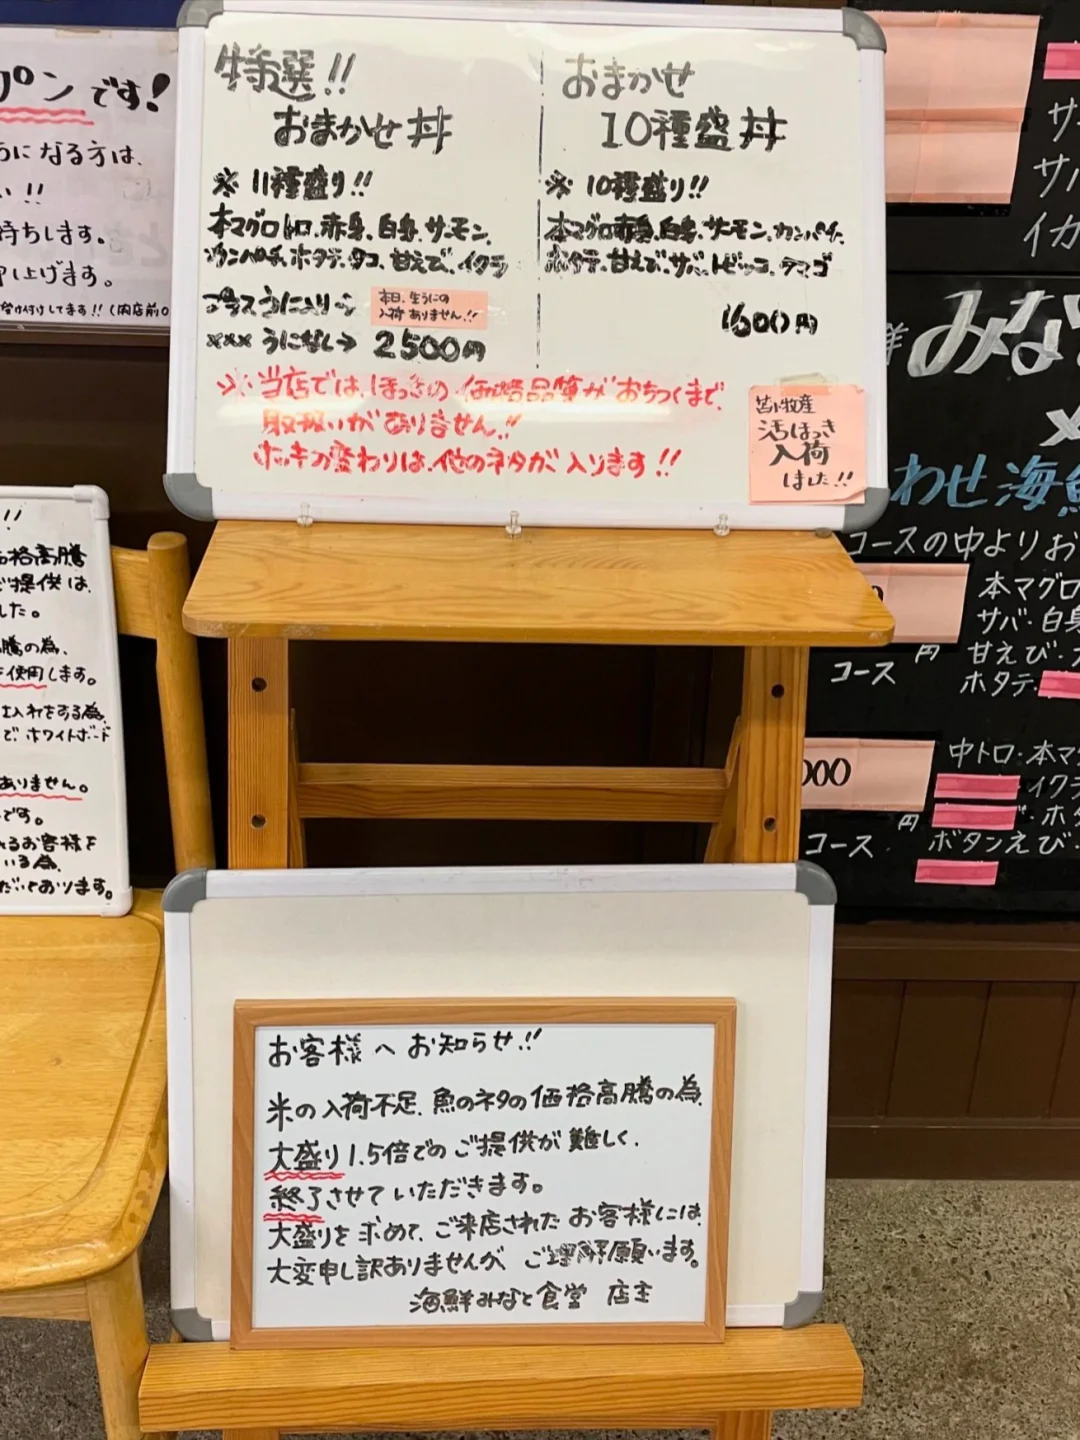 特選!!
おまかせ丼
※ 11種盛り!!
本マグロトロ、赤身、白身、サーモン、
カンパチ、ホタテ、タコ、甘えび、イクラ
プラスうに入り→
本日、生うにの
入荷ありません!!
××× うになし→ 2500円
おまかせ
10種盛丼
※ 10種盛り!!
本マグロ赤身、白身、サーモン、カンパチ、
ホタテ、甘えび、サバ、トビッコ、タマゴ
1600円
※当店では、ほっきの価格品質がおちつくまで、
取扱いがありません!!
ホッキの変わりは、他のネタが入ります!!
苫小牧産
活ほっき
入荷
しました!!
プンです!
うになる方は、
い!!
待ちします。
申し上げます。
受け付けてます!! (内店前
!!
価格高騰
ご提供は、
した。
騰の為、
を使用します。
仕入れをする為、
で、ホワイトボード
ありません。
です。
れるお客様を
いる為、
だいております。
お客様へお知らせ!!
米の入荷不足、魚のネタの価格高騰の為、
大盛り1.5倍でのご提供が難しく、
終了させていただきます。
大盛りを求めて、ご来店されたお客様には、
大変申し訳ありませんが、ご理解願います。
海鮮みなと食堂 店主
サ
サバ
イカ
みな
わせ海鮮
コースの中よりお
コース
円
本マグロ
サバ・白身
甘えび・
ホタテ・
000
円
コース
中トロ・本マグ
・イクラ
・ホタ
ボタンえび・